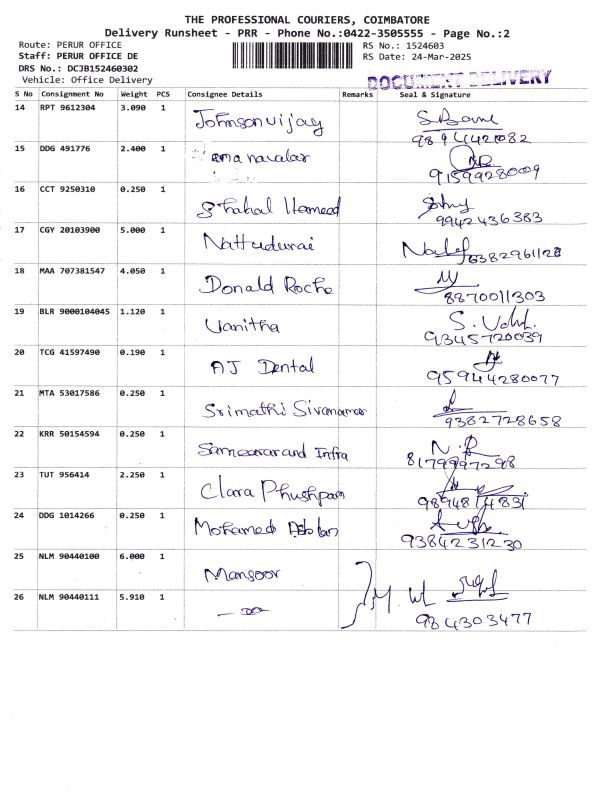 THE PROFESSIONAL COURIERS, COIMBATORE
Delivery Runsheet - PRR - Phone No.:0422-3505555 - Page No.:2
Route: PERUR OFFICE RS No.: 1524603
Staff: PERUR OFFICE DE RS Date: 24-Mar-2025
DRS No.: DCJB152460302
Vehicle: Office Delivery DOCUMENT DELIVERY
S No Consignment No Weight PCS Consignee Details Remarks Seal & Signature
14 RPT 9612304 3.090 1 Johnson vijay
9894442082
15 DDG 491776 2.400 1
9159928009
16 CCT 9250310 0.250 1 Shahal Hameed
9942436383
17 CGY 20103900 5.000 1 Nattudurai 6382961128
18 MAA 707381547 4.050 1 Donald Roche
8870011303
19 BLR 9000104045 1.120 1 Vanitha
9345720039
20 TCG 41597490 0.190 1 AJ Dental
95944280077
21 MTA 53017586 0.250 1 Srimathi
9382728658
22 KRR 50154594 0.250 1 Infra
8179997298
23 TUT 956414 2.250 1 Clara Phushpam
9894814831
24 DDG 1014266 0.250 1 Mohamed
9384231230
25 NLM 90440100 6.000 1 Mansoor
26 NLM 90440111 5.910 1 -do-
984303477